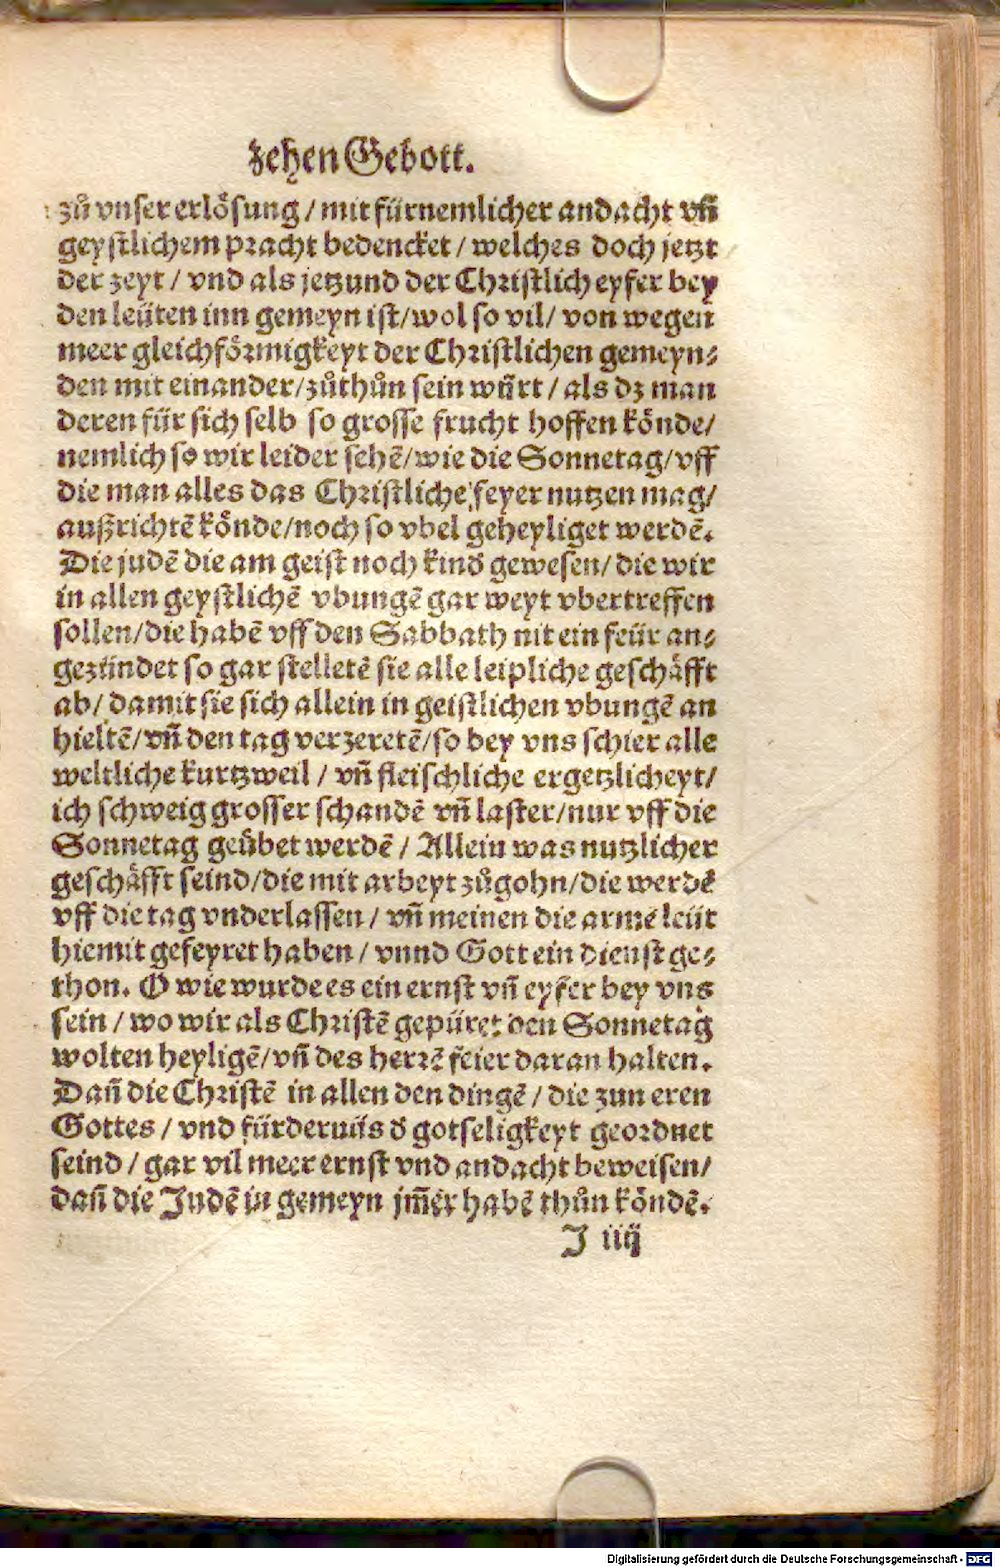 zehen Gebott.
zů vnser erlösung / mit fürnemlicher andacht vñ
geystlichem pracht bedencket / welches doch jetzt
der zeyt / vnd als jetzund der Christlich eyfer bey
den leüten inn gemeyn ist/wol so vil/ von wegen
meer gleichförmigkeyt der Christlichen gemeyn⸗
den mit einander/zůthůn sein würt / als dz man
deren für sich selb so grosse frucht hoffen könde/
nemlich so wir leider sehē/wie die Sonnetag/vff
die man alles das Christliche feyer nutzen mag/
außrichtē könde/noch so vbel geheyliget werdē.
Die judē die am geist noch kind gewesen/ die wir
in allen geystlichē vbungē gar weyt vbertreffen
sollen/die habē vff den Sabbath nit ein feür an⸗
gezündet so gar stelletē sie alle leipliche geschäfft
ab/ damit sie sich allein in geistlichen vbungē an
hieltē/vñ den tag verzeretē/so bey vns schier alle
weltliche kurtzweil / vñ fleischliche ergetzlicheyt/
ich schweig grosser schandē vñ laster/nur vff die
Sonnetag geübet werdē / Allein was nutzlicher
geschäfft seind/die mit arbeyt zůgohn/die werdē
vff die tag vnderlassen / vñ meinen die armē leüt
hiemit gefeyret haben / vnnd Gott ein dienst ge⸗
thon. O wie wurde es ein ernst vñ eyfer bey vns
sein / wo wir als Christē gepüret den Sonnetag
wolten heyligē/vñ des herrē feier daran halten.
Dañ die Christē in allen den dingē / die zun eren
Gottes / vnd fürdernüs d̕ gotseligkeyt geordnet
seind / gar vil meer ernst vnd andacht beweisen/
dañ die Judē in gemeyn jm̄er habē thůn köndē.
J iiij
Digitalisierung gefördert durch die Deutsche Forschungsgemeinschaft - DFG